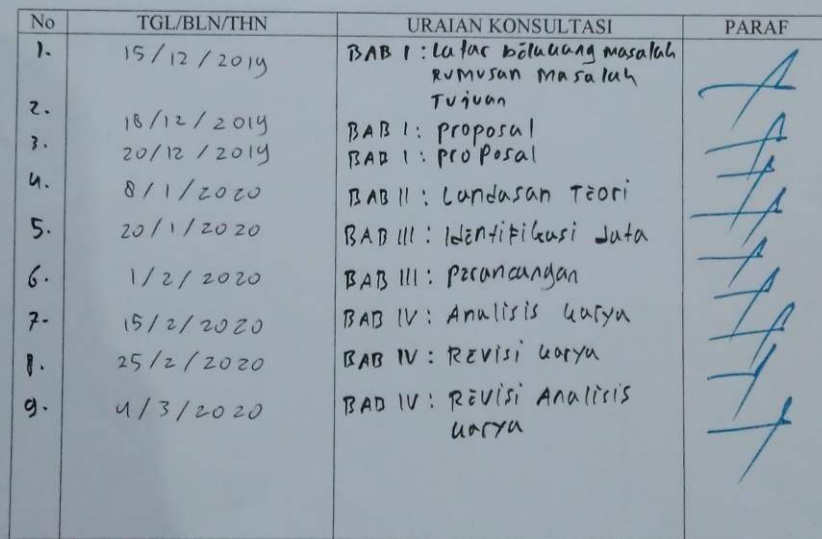 No TGL/BLN/THN URAIAN KONSULTASI PARAF
1. 15/12/2019 BAB I : Latar belakang masalah
Rumusan masalah
Tujuan
2. 18/12/2019 BAB I : proposal
3. 20/12/2019 BAB I : proposal
4. 8/1/2020 BAB II : Landasan Teori
5. 20/1/2020 BAB III : Identifikasi data
6. 1/2/2020 BAB III : perancangan
7. 15/2/2020 BAB IV : Analisis karya
8. 25/2/2020 BAB IV : Revisi karya
9. 4/3/2020 BAB IV : Revisi Analisis
karya